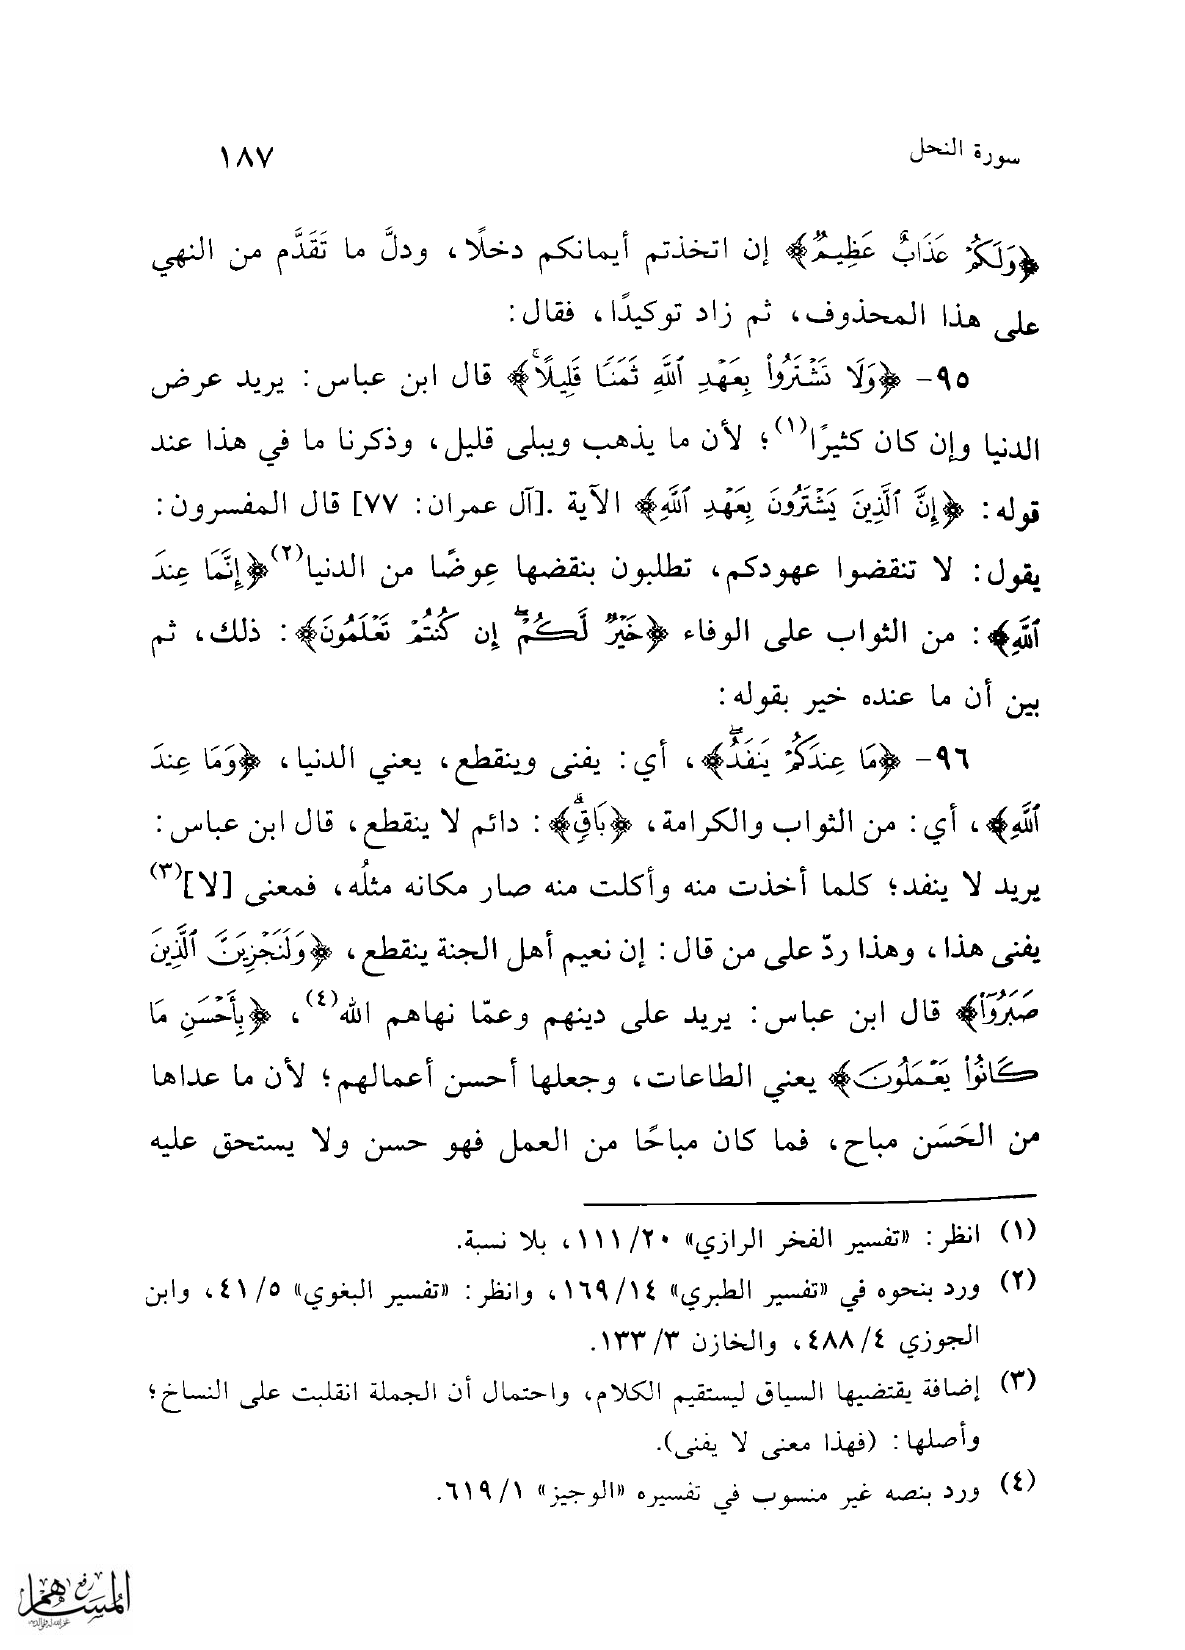 سورة النحل
١٨٧
﴿وَلَكُمْ عَذَابٌ عَظِيمٌ﴾ إن اتخذتم أيمانكم دخلًا، ودلَّ ما تَقَدَّم من النهي
على هذا المحذوف، ثم زاد توكيدًا، فقال:
٩٥- ﴿وَلَا تَشْتَرُوا۟ بِعَهْدِ ٱللَّهِ ثَمَنًا قَلِيلًا ۚ﴾ قال ابن عباس: يريد عرض
الدنيا وإن كان كثيرًا(١)؛ لأن ما يذهب ويبلى قليل، وذكرنا ما في هذا عند
قوله: ﴿إِنَّ ٱلَّذِينَ يَشْتَرُونَ بِعَهْدِ ٱللَّهِ﴾ الآية .[آل عمران: ٧٧] قال المفسرون:
يقول: لا تنقضوا عهودكم، تطلبون بنقضها عِوضًا من الدنيا(٢)﴿إِنَّمَا عِندَ
ٱللَّهِ﴾: من الثواب على الوفاء ﴿خَيْرٌ لَّكُمْ إِن كُنتُمْ تَعْلَمُونَ﴾: ذلك، ثم
بين أن ما عنده خير بقوله:
٩٦- ﴿مَا عِندَكُمْ يَنفَدُ ۖ﴾، أي: يفنى وينقطع، يعني الدنيا، ﴿وَمَا عِندَ
ٱللَّهِ﴾، أي: من الثواب والكرامة، ﴿بَاقٍ ۗ﴾: دائم لا ينقطع، قال ابن عباس:
يريد لا ينفد؛ كلما أخذت منه وأكلت منه صار مكانه مثلُه، فمعنى [لا](٣)
يفنى هذا، وهذا ردّ على من قال: إن نعيم أهل الجنة ينقطع، ﴿وَلَنَجْزِيَنَّ ٱلَّذِينَ
صَبَرُوٓا۟﴾ قال ابن عباس: يريد على دينهم وعمّا نهاهم الله(٤)، ﴿بِأَحْسَنِ مَا
كَانُوا۟ يَعْمَلُونَ﴾ يعني الطاعات، وجعلها أحسن أعمالهم؛ لأن ما عداها
من الحَسَن مباح، فما كان مباحًا من العمل فهو حسن ولا يستحق عليه
(١) انظر: «تفسير الفخر الرازي» ٢٠/١١١، بلا نسبة.
(٢) ورد بنحوه في «تفسير الطبري» ١٤/١٦٩، وانظر: «تفسير البغوي» ٥/٤١، وابن
الجوزي ٤/٤٨٨، والخازن ٣/١٣٣.
(٣) إضافة يقتضيها السياق ليستقيم الكلام، واحتمال أن الجملة انقلبت على النساخ؛
وأصلها: (فهذا معنى لا يفنى).
(٤) ورد بنصه غير منسوب في تفسيره «الوجيز» ١/٦١٩.
رفع
المساهم